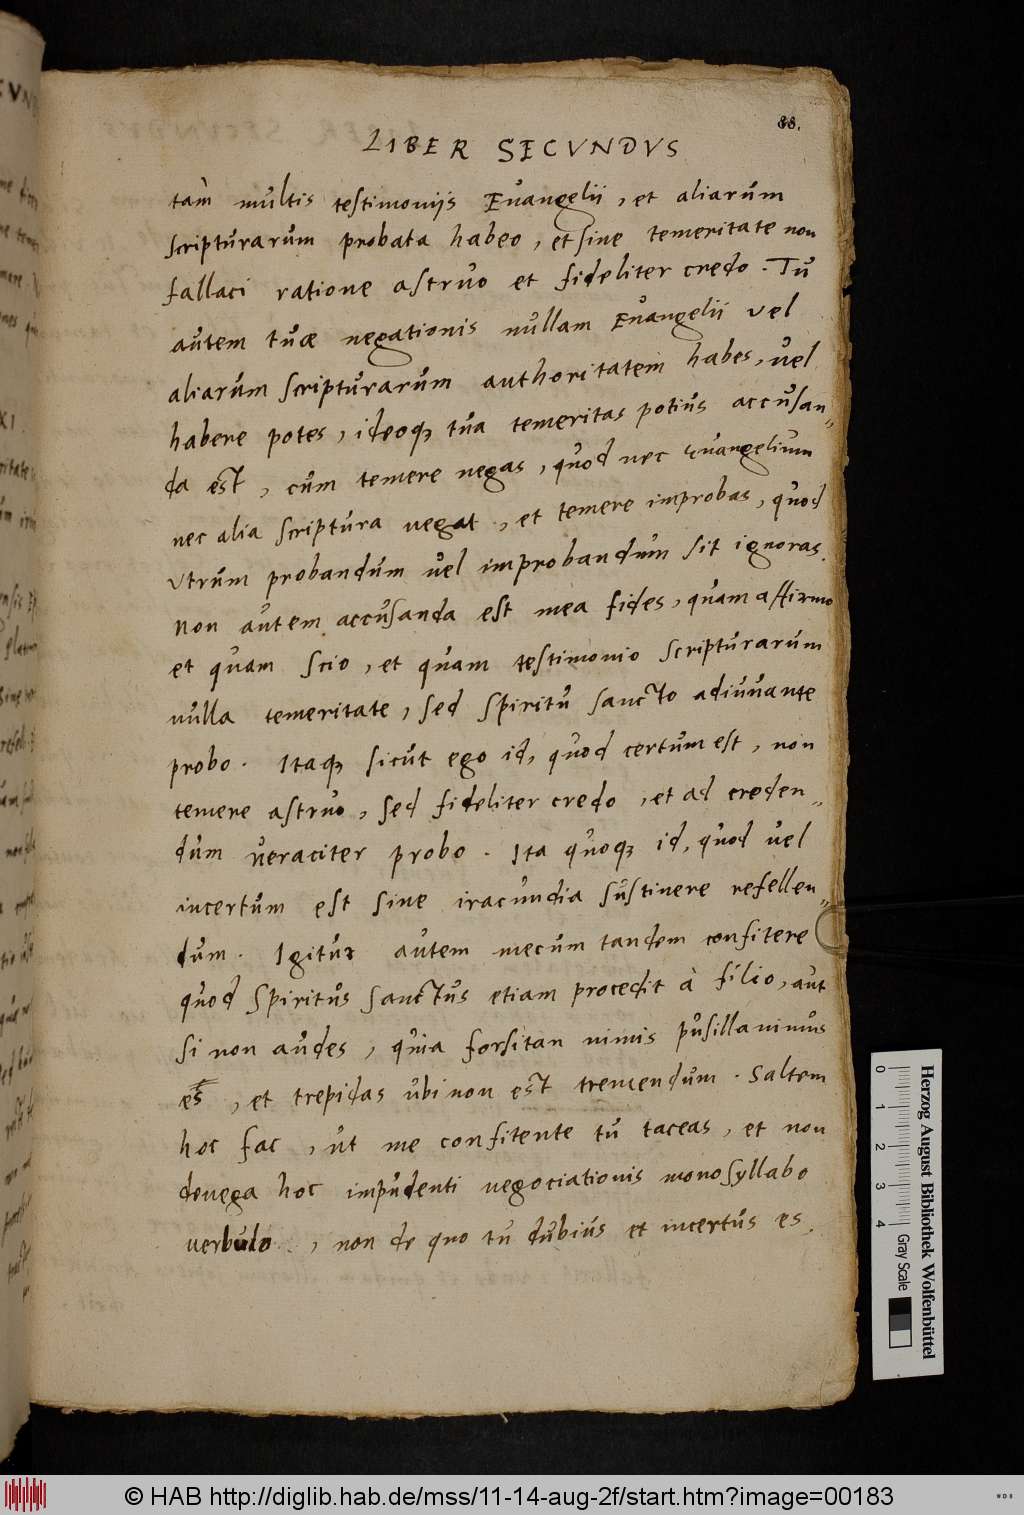 88.
LIBER SECVNDVS
tàm multis testimonijs Euangelii, et aliarum
scripturarum probata habeo, et sine temeritate non
fallaci ratione astruo et fideliter credo. Tu
autem tuæ negationis nullam Euangelii vel
aliarum scripturarum authoritatem habes, vel
habere potes, ideoq₃ tua temeritas potius accusan„
da est, cum temere negas, quod nec Euangelium
nec alia scriptura negat, et temere improbas, quod
vtrum probandum vel improbandum sit ignoras.
Non autem accusanda est mea fides, quam affirmo
et quam scio, et quam testimonio scripturarum
nulla temeritate, sed spiritu sancto adiuuante
probo. Itaq₃ sicut ego id, quod certum est, non
temere astruo, sed fideliter credo, et ad creden„
dum veraciter probo. Ita quoq₃ id, quod vel
incertum est sine iracundia sustinere refellen„
dum. Igitur autem mecum tandem confitere
quod spiritus sanctus etiam procedit à filio, aut
si non audes, quia forsitan nimis pusillanimus
es, et trepidas ubi non est tremendum. Saltem
hoc fac, ut me confitente tu taceas, et non
denega hoc impudenti negociationis monosyllabo
verbulo, non de quo tu dubius et incertus es.
Herzog August Bibliothek Wolfenbüttel
0 1 2 3 4
Gray Scale
© HAB http://diglib.hab.de/mss/11-14-aug-2f/start.htm?image=00183